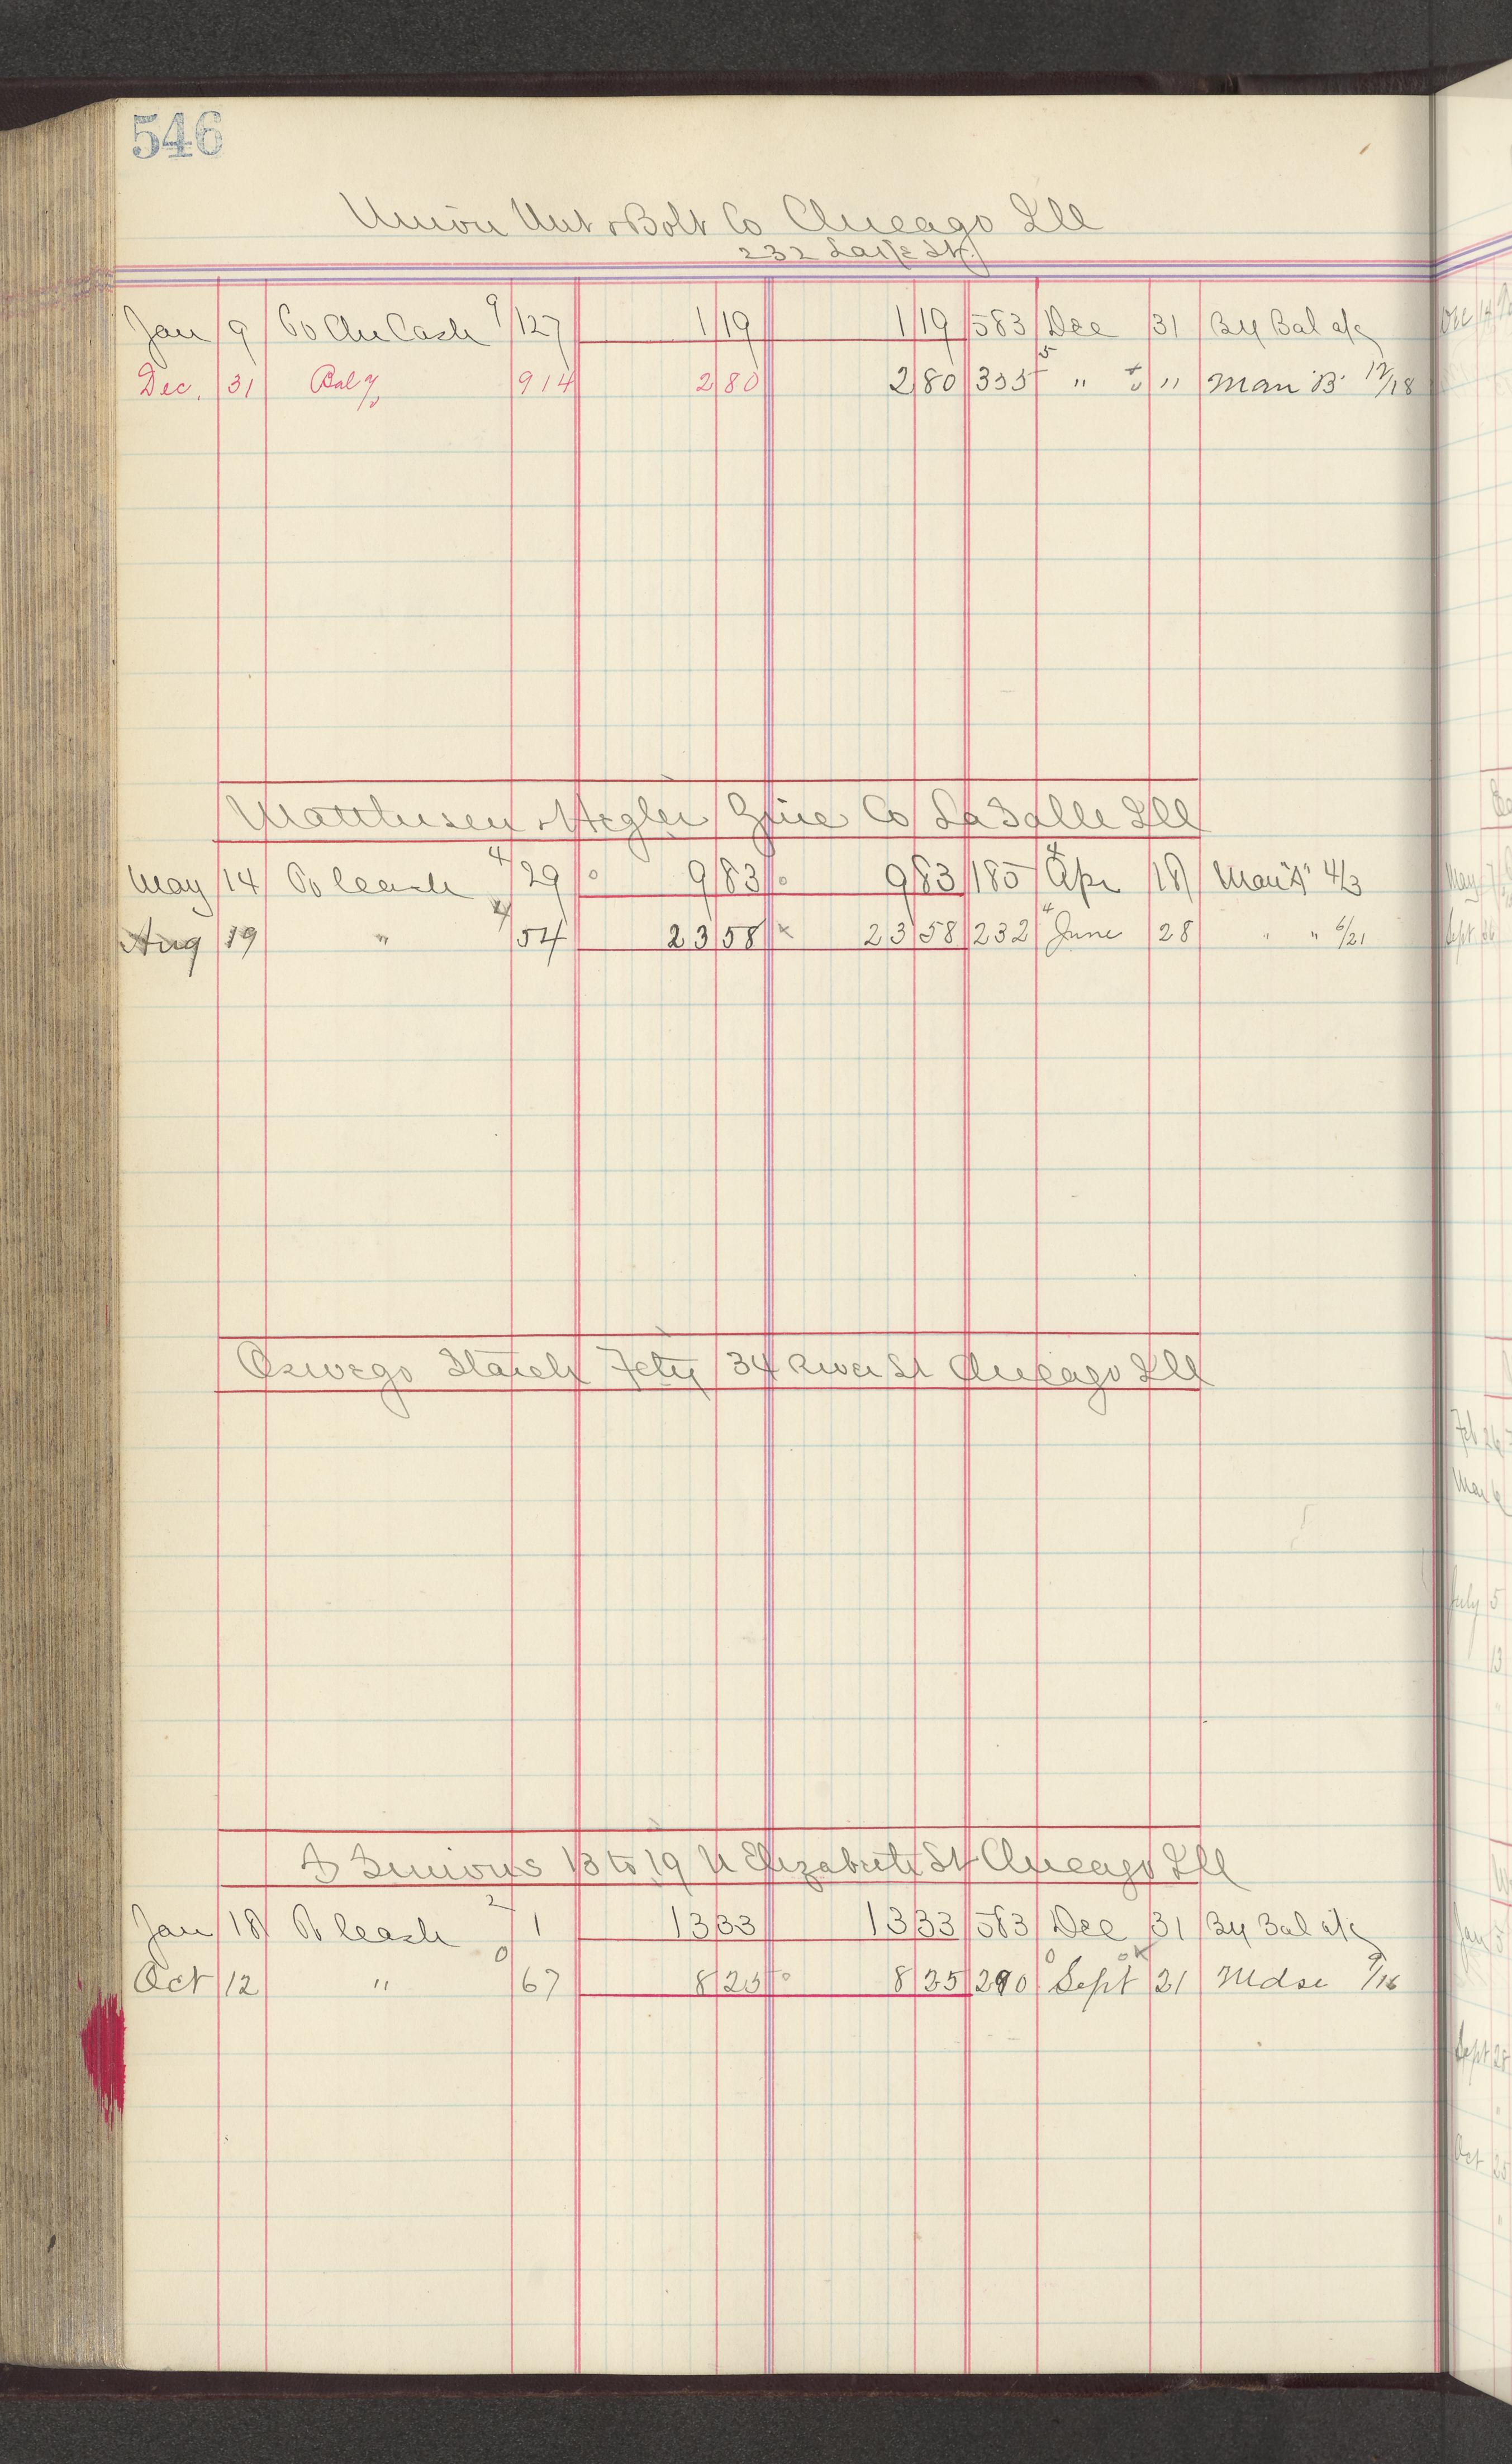 546
Union Nut & Bolt Co Chicago Ill
232 Lake St.
Jan 9 To Chi Cash 9/127 1 19 1 19 583 Dec 31 By Bal a/c
Dec. 31 Bal 914 2 80 2 80 335 5 " " Man "B" 12/18
Matthiesen & Hegler Zinc Co La Salle Ill
May 14 To Cash 4/29 9 83 9 83 185 4 Apr 18 Man "A" 4/3
Aug 19 " 4/54 23 58 23 58 232 4 June 28 " " 6/21
Oswego Starch Fcty 34 River St Chicago Ill
Simons 13 to 19 N Elizabeth St Chicago Ill
Jan 18 To Cash 2/1 13 33 13 33 583 Dec 31 By Bal a/c
Oct 12 " 0/67 8 25 8 25 290 0 Sept 21 Mdse 9/16